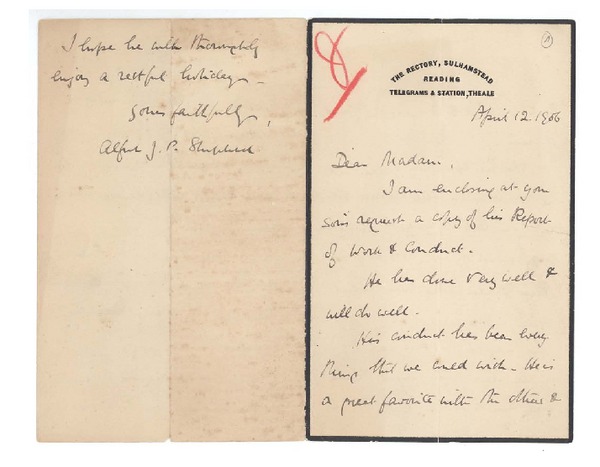 THE RECTORY, SULHAMSTEAD
READING
TELEGRAMS & STATION, THEALE
April 12. 1906
Dear Madam,
I am enclosing at your
son's request a copy of his Report
of Work & Conduct.
He has done very well &
will do well.
His conduct has been every
thing that we could wish. He is
a great favorite with the others &
I hope he will thoroughly
enjoy a restful holiday.
Yours faithfully,
Alfred J. P. Shepherd.